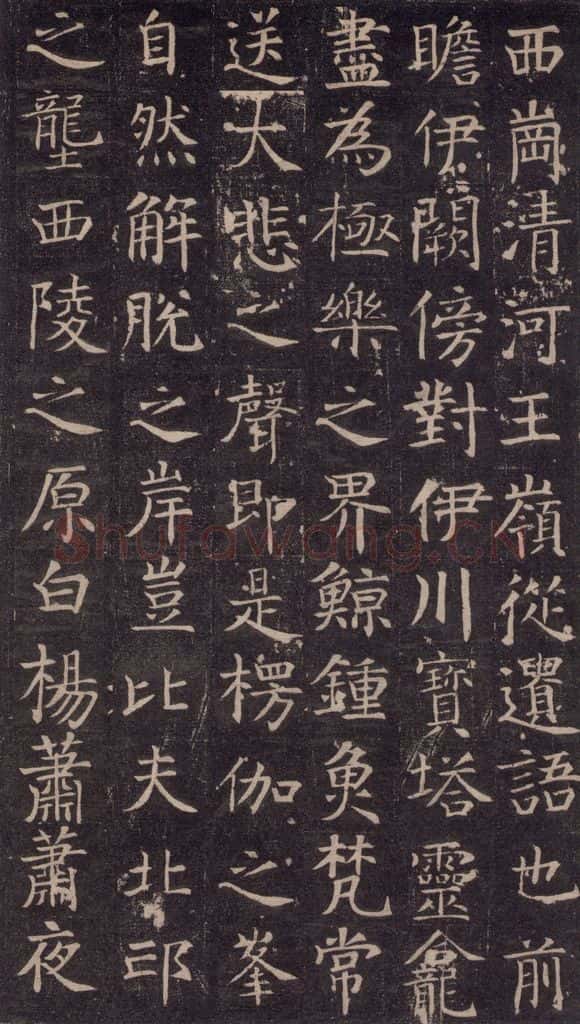 西崗清河王嶺從遺語也前
瞻伊闕傍對伊川寶塔靈龕
盡為極樂之界鯨鍾奐梵常
送大悲之聲即是楞伽之峯
自然解脫之岸豈比夫北邙
之壟西陵之原白楊蕭蕭夜
Shufawang.CN